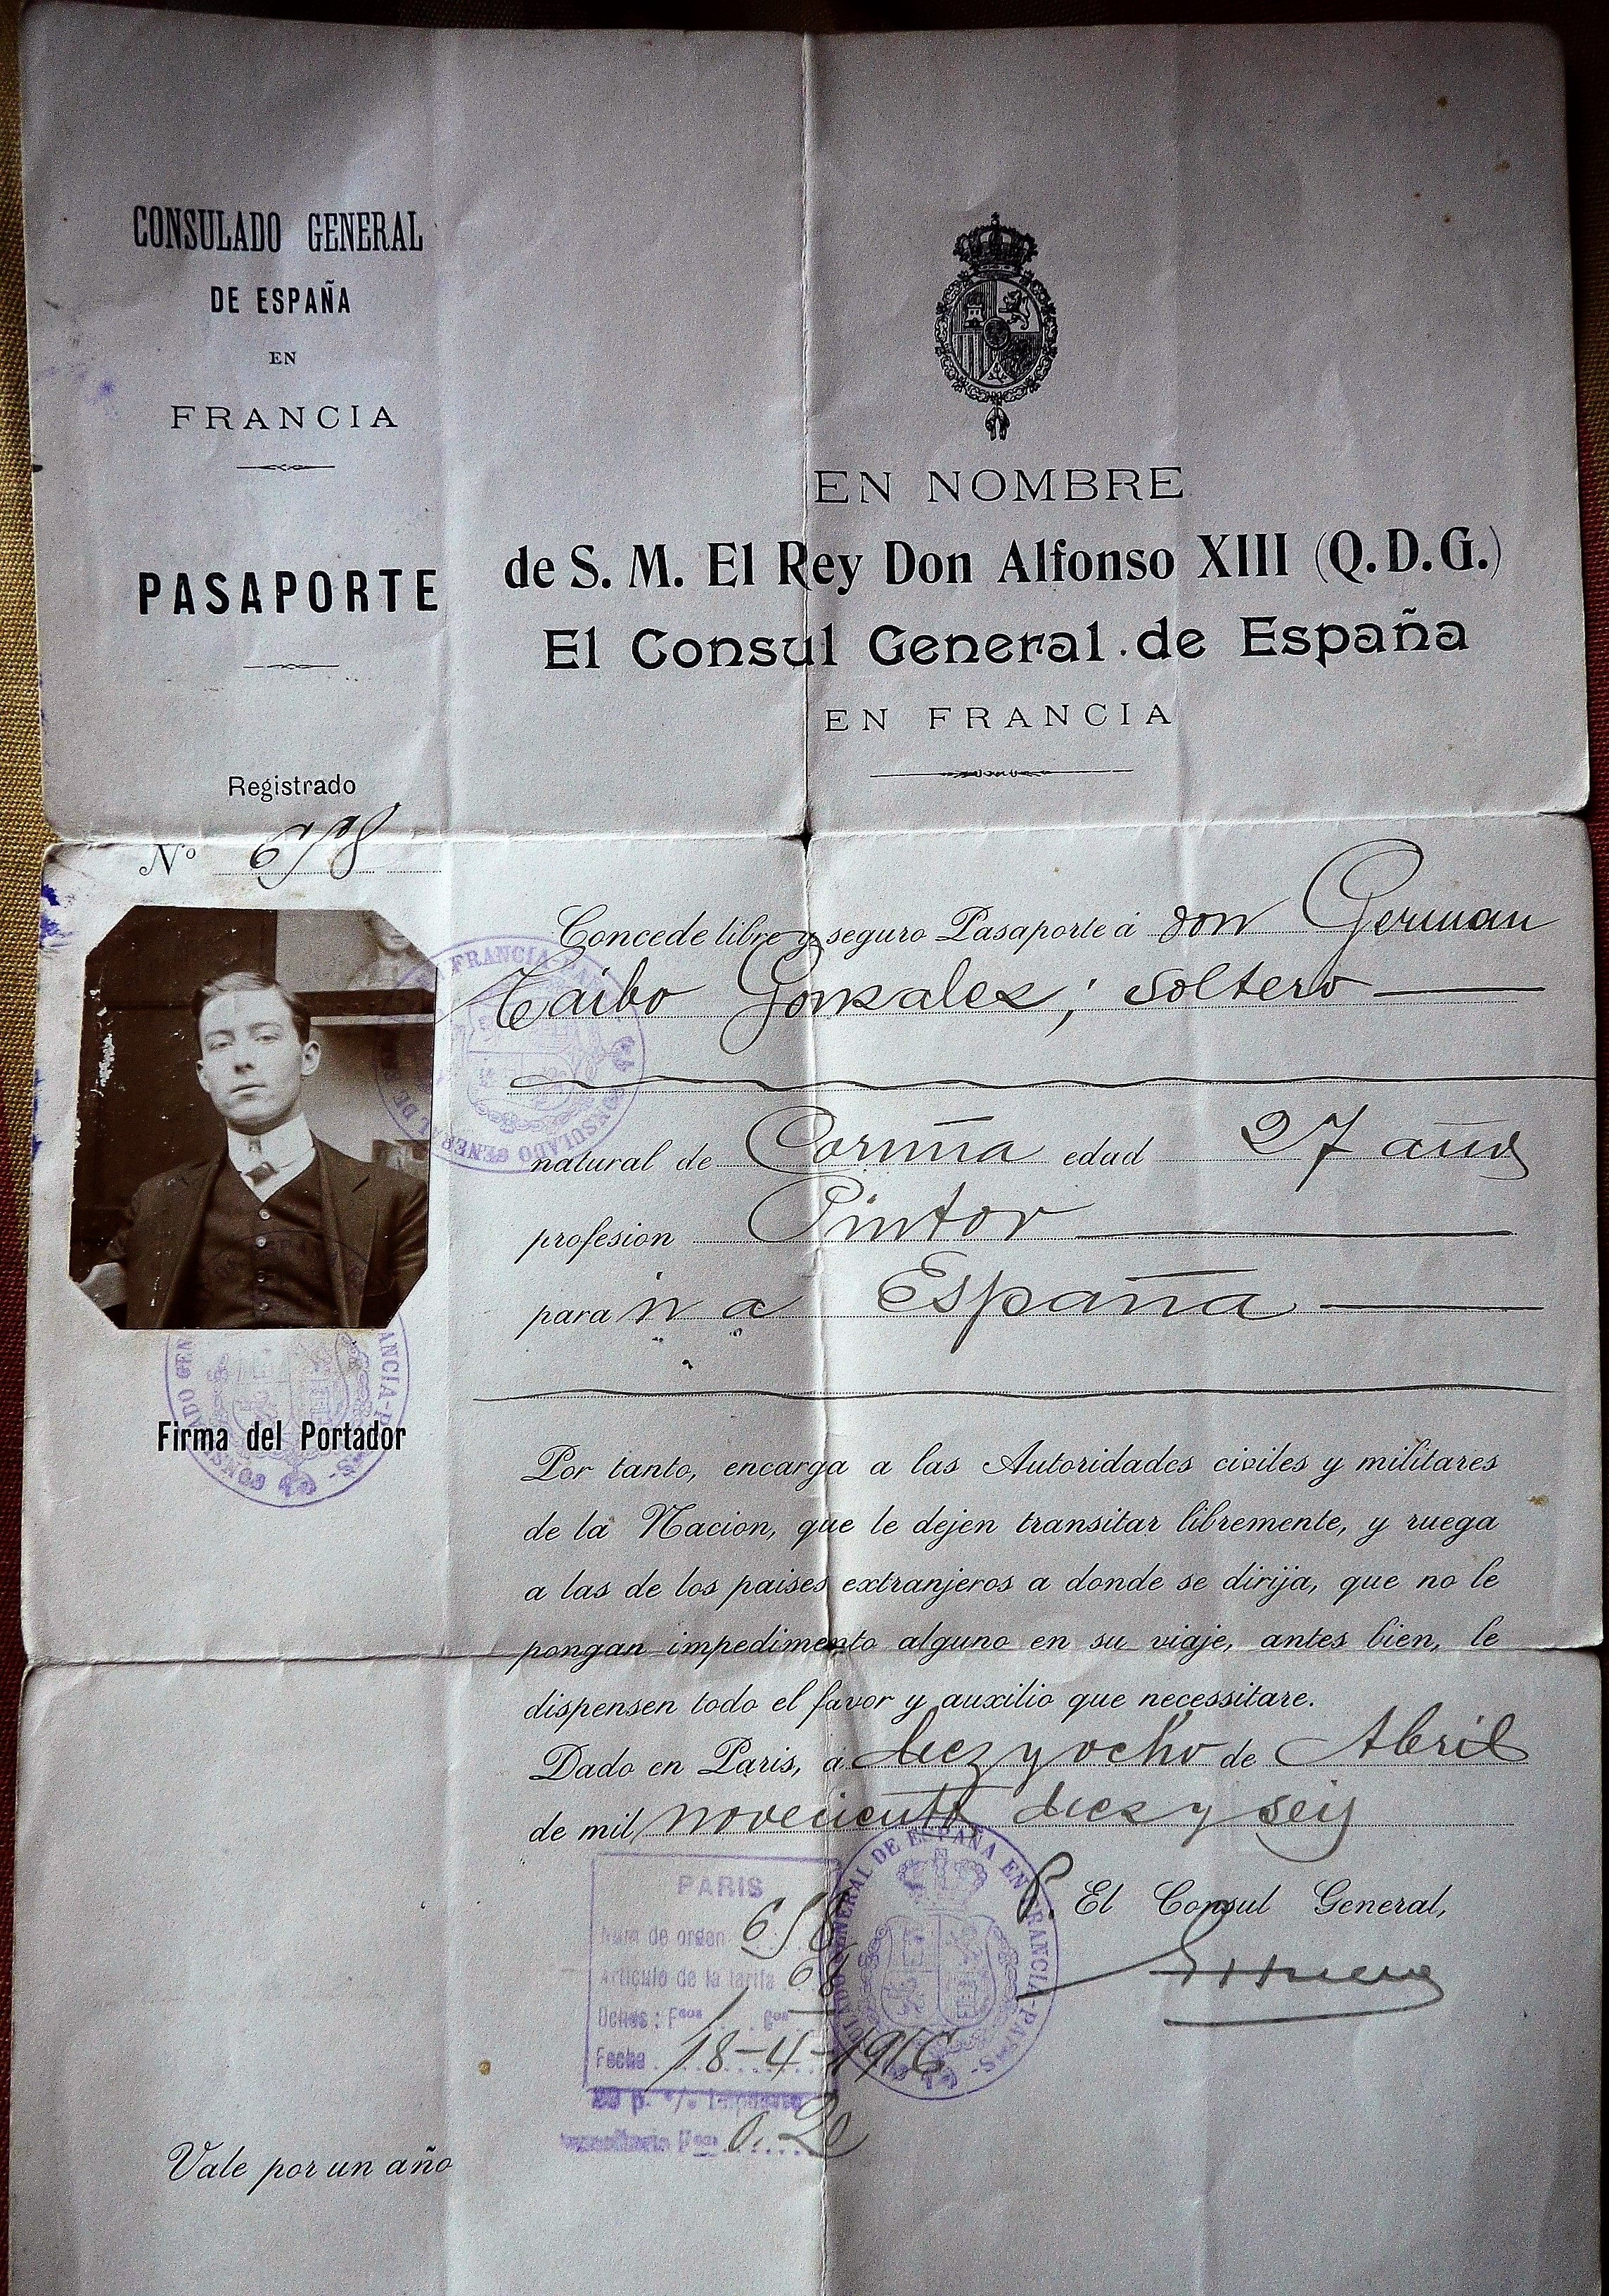 CONSULADO GENERAL
DE ESPAÑA
EN
FRANCIA
PASAPORTE
Registrado
Nº 698
Firma del Portador
Vale por un año
EN NOMBRE
de S. M. El Rey Don Alfonso XIII (Q. D. G.)
El Consul General de España
EN FRANCIA
Concede libre y seguro Pasaporte á don German
Taibo Gonzalez, soltero
natural de Coruña edad 27 años
profesion Pintor
para ir a España
Por tanto, encarga a las Autoridades civiles y militares
de la Nacion, que le dejen transitar libremente, y ruega
a las de los paises extranjeros a donde se dirija, que no le
pongan impedimento alguno en su viaje, antes bien, le
dispensen todo el favor y auxilio que necessitare.
Dado en Paris, á diez y ocho de Abril
de mil novecientos diez y seis
P. El Consul General,
PARIS
Núm de orden
Artículo de la tarifa 68
Fecha 18-4-1916
CONSULADO GENERAL DE ESPAÑA EN FRANCIA-PARIS